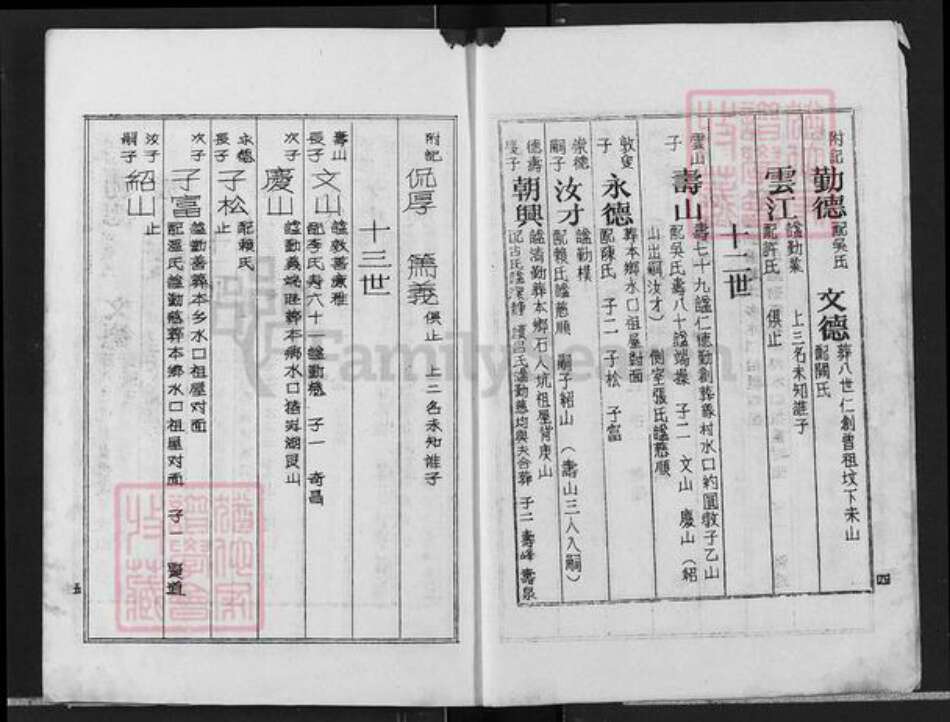 附記
勤德 配吳氏 文德 葬八世仁創曾祖坟下未山
配關氏
雲江 諡勤業 上三名未知誰子
配許氏 俱止
十二世
雲山 壽七十九諡仁德勤創葬義村水口約圓墩子乙山
子 壽山 配吳氏壽八十諡端操 子二 文山 慶山(紹
山出嗣汝才) 側室張氏諡慈順
敦叟 葬本鄉水口祖屋對面
子 永德 配陳氏 子二 子松 子富
崇德 諡勤樸
嗣子 汝才 配賴氏諡慈順 嗣子紹山 (壽山三人入嗣)
德壽 諡清勤葬本鄉石人坑祖屋背庚山
長子 朝興 配古氏諡 續呂氏諡勤慈均與夫合葬 子二 壽峰 壽泉
四
附記
侃厚 篤義 俱止 上二名未知誰子
十三世
壽山 諡敦善
長子 文山 配李氏寿六十一諡勤慈 子一 奇昌
次子 慶山 諡勤義 葬本鄉水口 湖艮山
永德 配賴氏
長子 子松 止
次子 子富 諡勤善葬本乡水口祖屋对面
配溫氏諡勤慈葬本鄉水口祖屋对面 子一 賢道
汝才
嗣子 紹山 止
五
FamilySearch